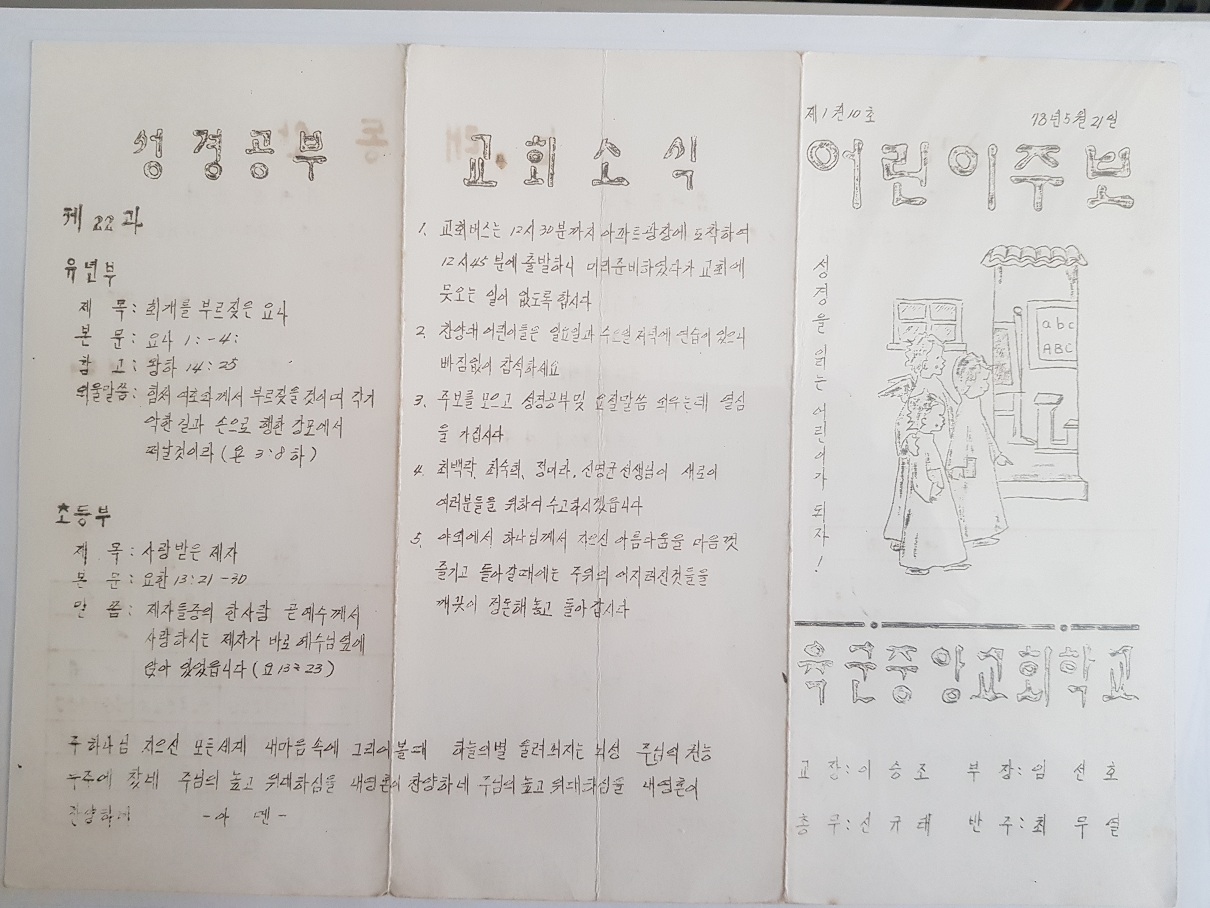 성경공부
제 22 과
유년부
제 목 : 회개를 부르짖은 요나
본 문 : 요나 1 : -4 :
참 고 : 왕하 14 : 25
외울말씀 : 힘써 여호와께서 부르짖을 것이며 각기
악한 길과 손으로 행한 강포에서
떠날것이라 ( 욘 3·8 하 )
초등부
제 목 : 사랑받은 제자
본 문 : 요한 13 : 21 -30
말 씀 : 제자들중의 한사람 곧 예수께서
사랑하시는 제자가 바로 예수님 옆에
앉아 있었읍니다 ( 요 13:23 )
교회소식
1. 교회버스는 12시 30분까지 아파트광장에 도착하여
12시 45분에 출발하니 미리준비하였다가 교회에
못오는 일이 없도록 합시다
2. 찬양대 어린이들은 일요일과 수요일 저녁에 연습이 있으니
빠짐없이 참석하세요
3. 주보를 모으고 성경공부및 요절말씀 외우는데 열심
을 가집시다
4. 최백락, 최숙희, 정나라, 신명균선생님이 새로이
여러분들을 위하여 수고하시겠읍니다
5. 야외에서 하나님께서 지으신 아름다움을 마음껏
즐기고 돌아갈때에는 주위의 어지러진것들을
깨끗이 정돈해 놓고 돌아갑시다
주 하나님 지으신 모든세계 내마음 속에 그리어볼때 하늘의별 울려퍼지는 뇌성 주님의 권능
우주에 찼네 주님의 높고 위대하심을 내영혼이 찬양하네 주님의 높고 위대하심을 내영혼이
찬양하네 -아 멘-
제1권10호 78년5월21일
어린이주보
성경을 읽는 어린이가 되자!
abc
ABC
육군중앙교회학교
교 장 : 이 승 조 부 장 : 임 선 호
총 무 : 신 규 태 반 주 : 최 무 열